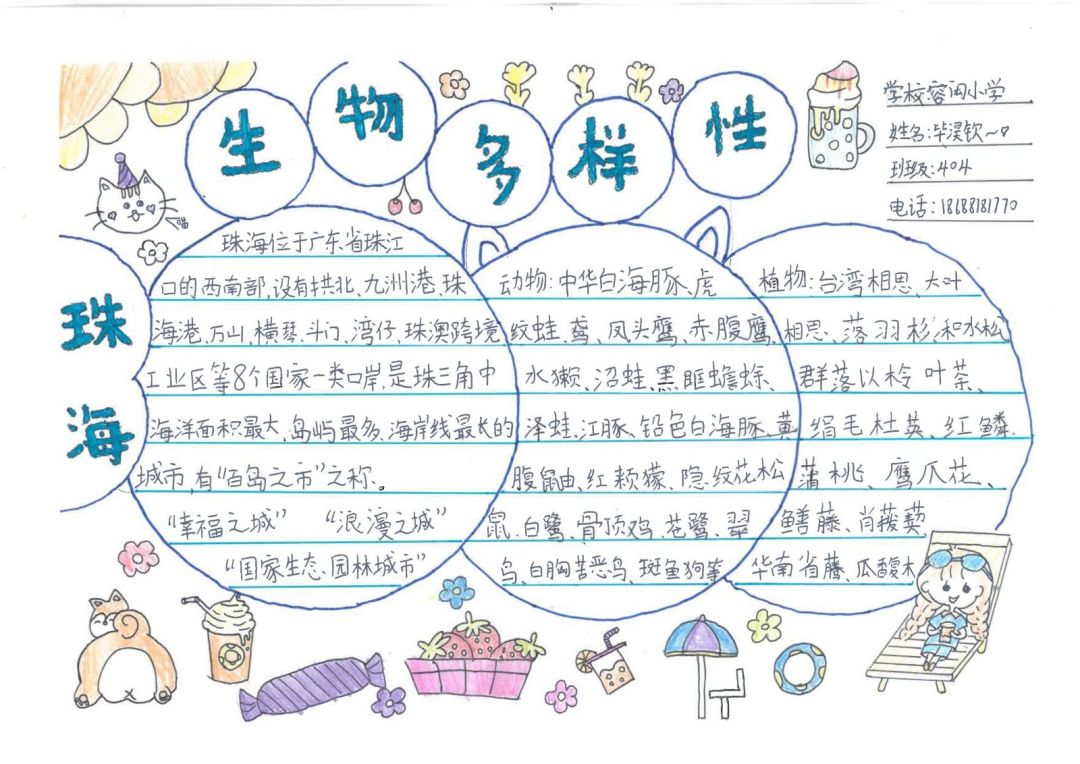 生物多样性
学校:容闳小学
姓名:毕淏钦
班级:404
电话:18688181770
珠海
珠海位于广东省珠江
口的西南部,设有拱北、九洲港、珠
海港、万山、横琴、斗门、湾仔、珠澳跨境
工业区等8个国家一类口岸,是珠三角中
海洋面积最大,岛屿最多,海岸线最长的
城市,有“百岛之市”之称。
“幸福之城” “浪漫之城”
“国家生态园林城市”
动物:中华白海豚、虎
纹蛙、鸢、凤头鹰、赤腹鹰、
水獭、沼蛙、黑眶蟾蜍、
泽蛙、江豚、铅色白海豚、黄
腹鼬、红颊獴、隐纹花松
鼠、白鹭、骨顶鸡、苍鹭、翠
鸟、白胸苦恶鸟、斑鱼狗等
植物:台湾相思、大叶
相思、落羽杉和水松
群落以柃叶茶、
绢毛杜英、红鳞
蒲桃、鹰爪花、
鳝藤、肖菝葜
华南省藤、瓜馥木